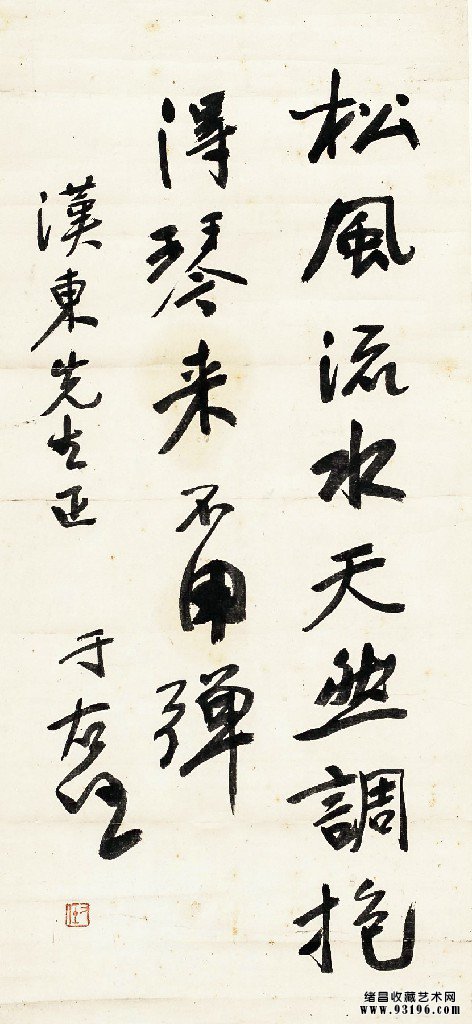 松風流水天然調抱
得琴来不用弹
漢東先生正
于右任
绪昌收藏艺术网
www.93196.com